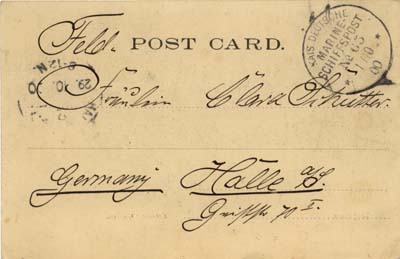 Feld- POST CARD.
KAIS. DEUTSCHE
MARINE-
SCHIFFSPOST
No 65
00
29.10.
8-12 N
Fräulein Clära Schutter.
Germany Halle a/S.
I.